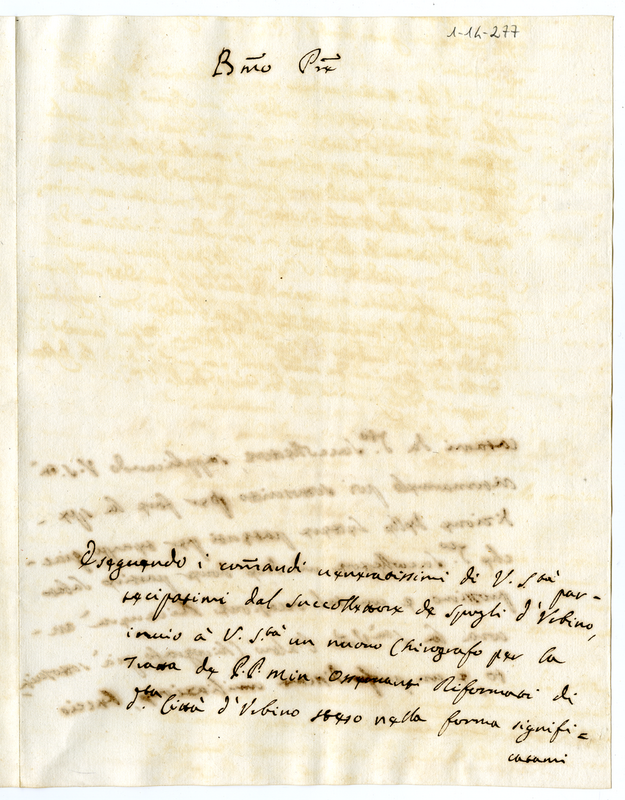 1-14-277
Bm̃o Pr̃e
Eseguendo i com̃andi veneratissimi di V. S.tà par-
tecipatimi dal Succollettore de Spogli d'Vrbino,
inuio à V. S.tà un nuouo Chirografo per la
Tratta de P.P. Min. Osseruanti Riformati di
d.ta Città d'Vrbino steso nella forma signifi=
catami